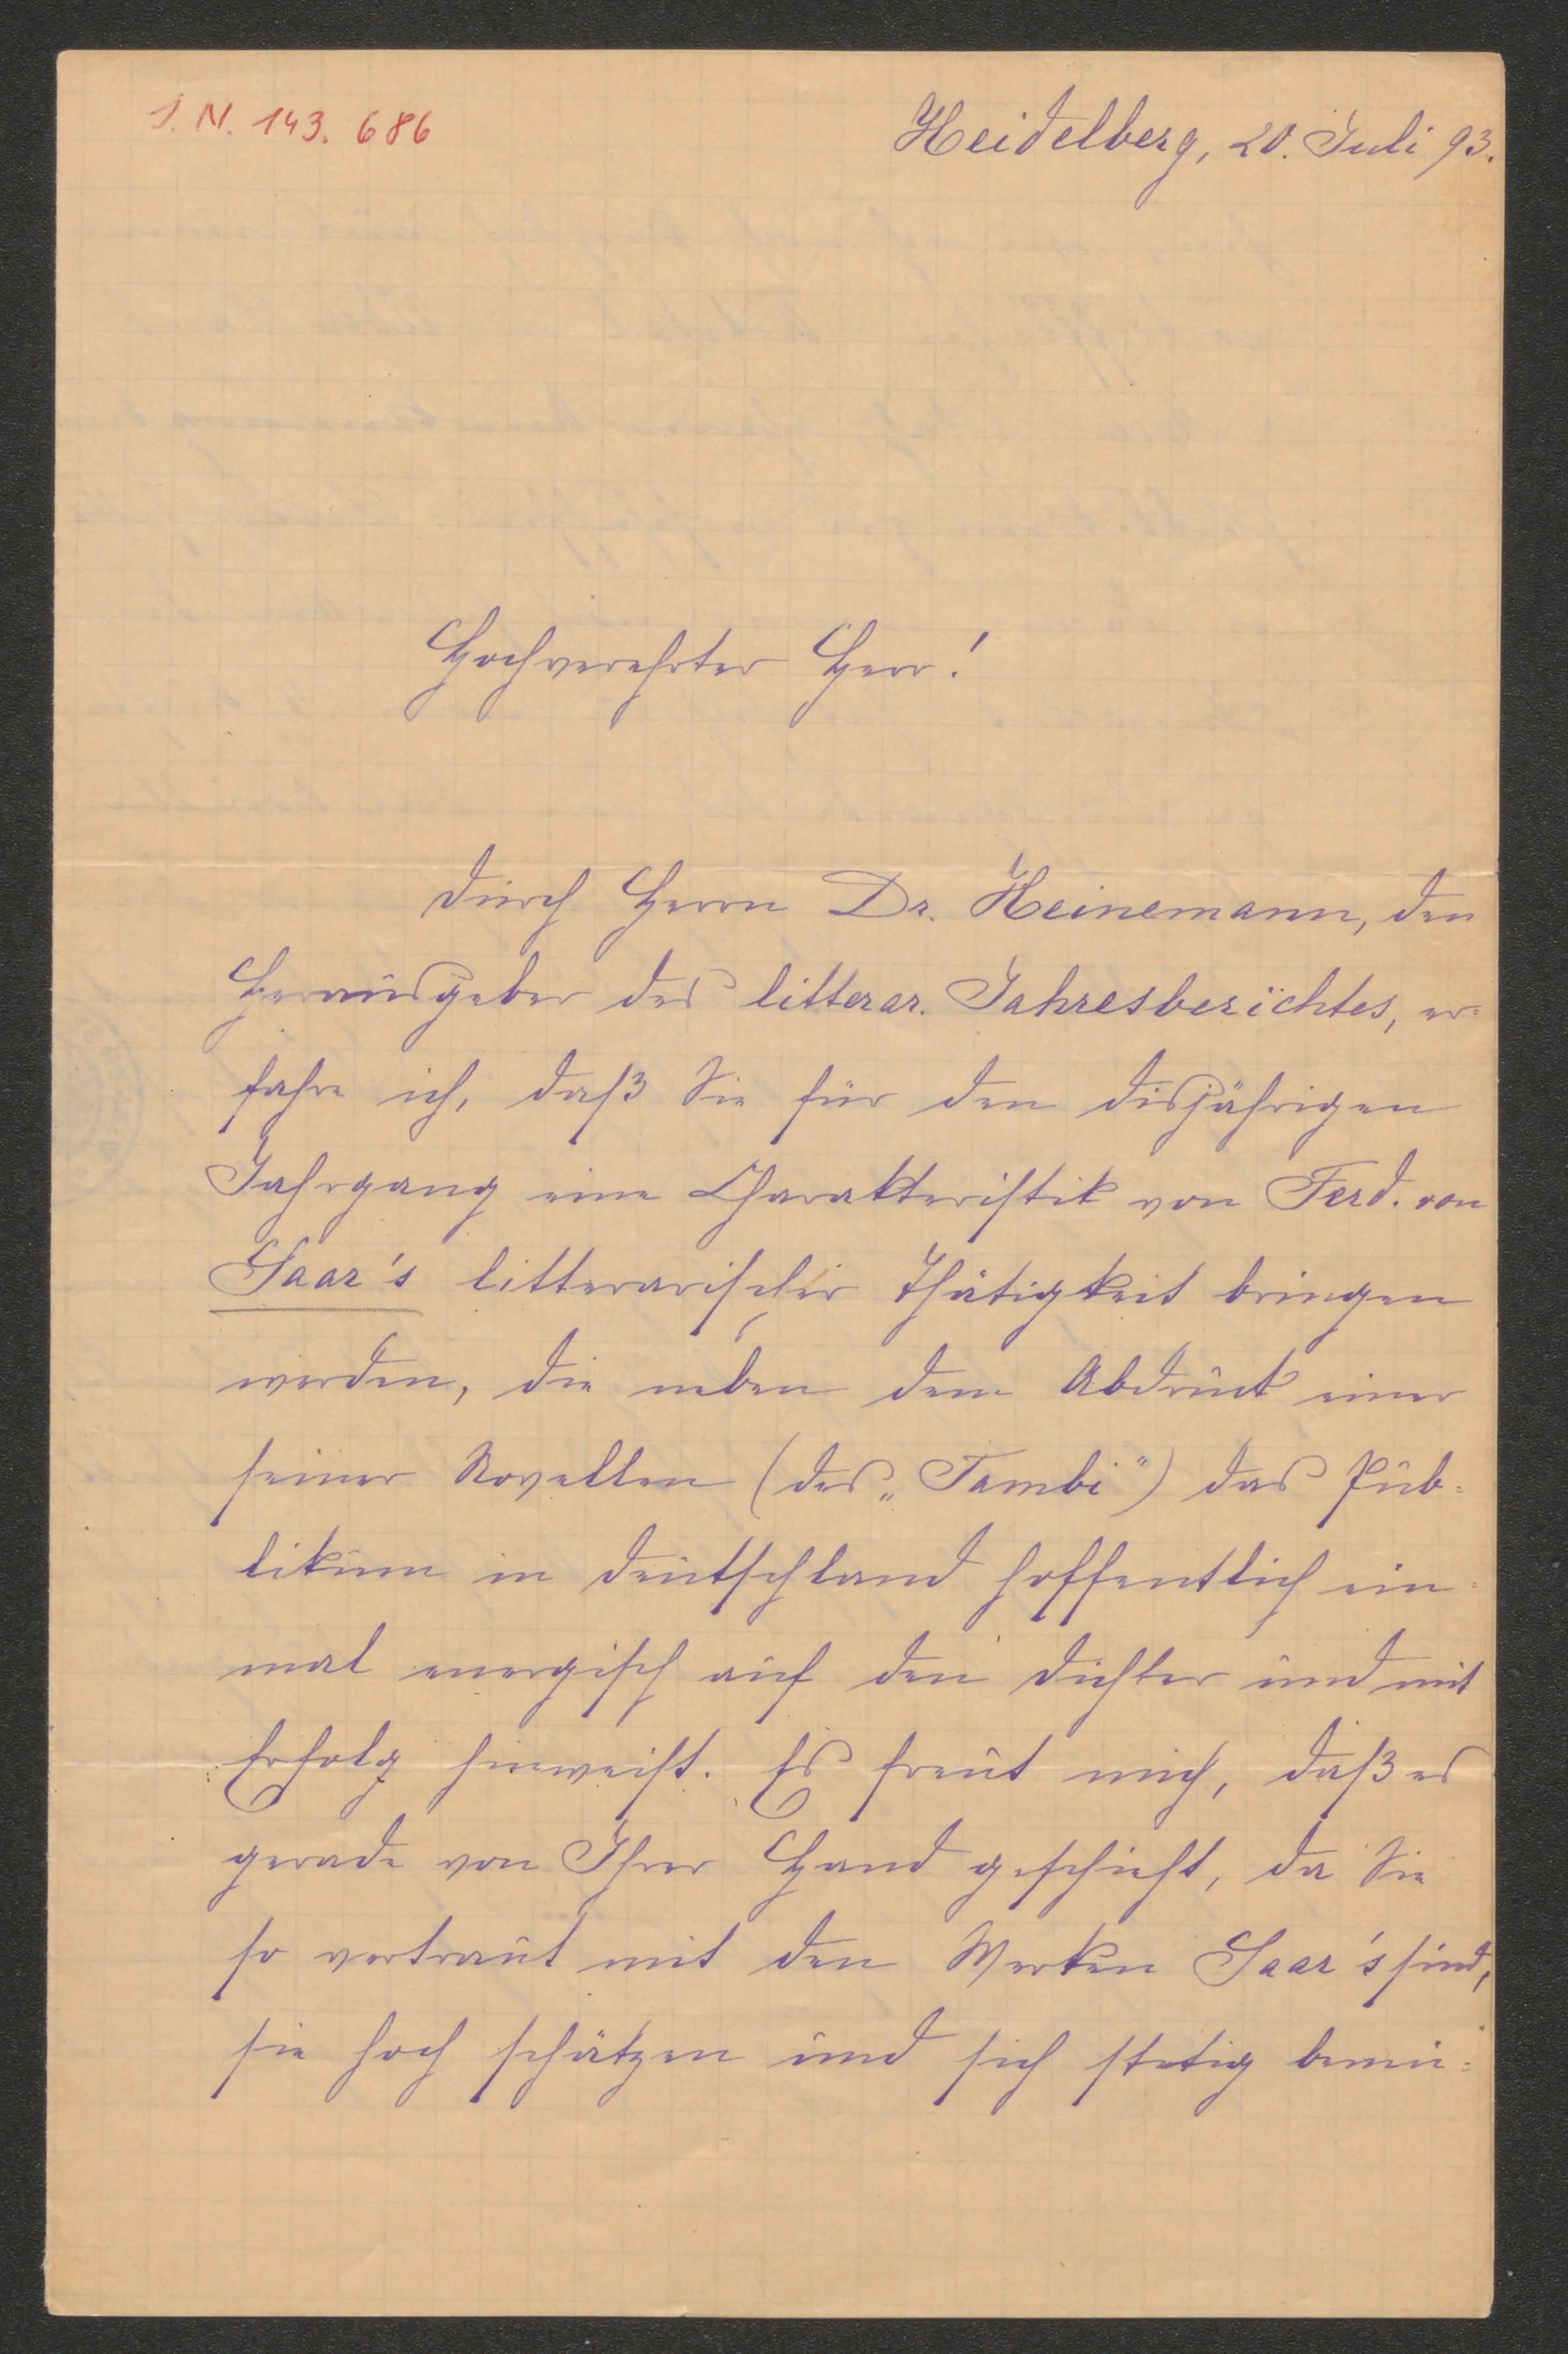 J. N. 143. 686
Heidelberg, 20. Juli 93.
Hochverehrter Herr!
Durch Herrn Dr. Heinemann, den
Herausgeber des litterar. Jahresberichtes, er-
fahre ich, daß Sie für den disjährigen
Jahrgang eine Charakteristik von Ferd. von
Saar's litterarischer Thätigkeit bringen
werden, die neben dem Abdruck einer
seiner Novellen (des „Tambi") das Pub-
likum in Deutschland hoffentlich ein-
mal energisch auf den Dichter und mit
Erfolg hinweist. Es freut mich, daß es
gerade von Ihrer Hand geschieht, da Sie
so vertraut mit den Werken Saar's sind,
sie hoch schätzen und sich stetig bemü-